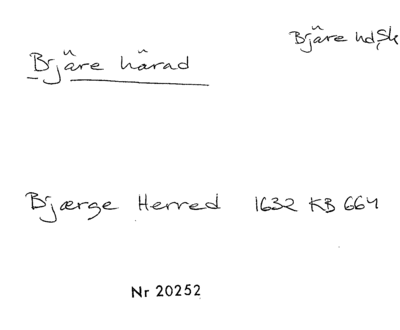 Bjäre hd, Sk
Bjäre härad
Bjærge Herred 1632 KB 664
Nr 20252